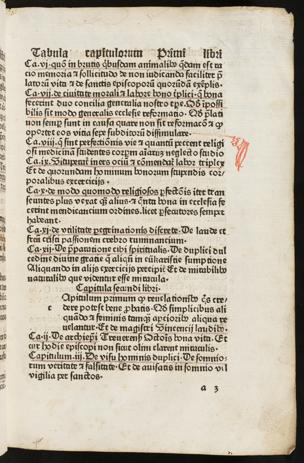 Tabula capitulorum Primi libri
Ca. vi. quō in brutis qbusdam animalibꝰ qdam est ra
cio memoria ⁊ sollicitudo de non iudicanda faciliter p̄
latorū vita ⁊ de sanctis episcoporū quorūdā exēplis.
Ca. vii. de ciuitate regali ⁊ labore bono ſplici. q bona
fecerint duo concilia generalia nostro tpe. Qd ipossi
bilis sit modo generalis ecclesie reformatio. Qd p̄lati
non semp sunt in causa quare non sit reformacō ⁊ q
oportet eos vitia sepe subditorū dissimulare.
Ca. viii. q sint perfectionis vie ⁊ quantū precent religi
osi medicinā studentes corpm aīatus neglecto studio
Ca. ix. Stupent iners ociū ⁊ cōmendat labor triplex
Et de quorundam hominum bonorum stupendis cor
poralibus exerciciis.
Ca. x. de modo quomodo religiosos pfectōis iter tran
seuntes plus vexat q alius. ⁊ cūta bona in ecclesia fe
cerint mendicantium ordines. licet psecutores semper
habeant.
Ca. xi. de vtilitate pegrinationis discrete. De laude et
fructu cristi passionem crebro ruminancium.
Ca. xii. De pparatione cibi spiritualis. De duplici dul
cedine diuine gratie q aliqn in eukaristie sumptione
Aliquando in alijs exercicijs precipit Et de mirabilibꝰ
naturalibꝰ que videntur esse miracula.
Capitula secundi libri.
Apitulum primum q reuelationibꝰ
c
credere potest bene pbatis. Qd simplicibus ali
quādo ⁊ feminis tamq aptioribꝰ aliqua re
uelantur. Et de magistri Vincencii laudibꝰ.
Ca. ii. De archiepi Treueren Ottois bona vita. Et
cur hodie episcopi non sicut olim clarent miraculis.
Capitulum. iii. De visu hominis duplici. De somnio
rum veritate ⁊ falsitate. Et de auisatis in somnio vl
vigilia per sanctos.
a 3